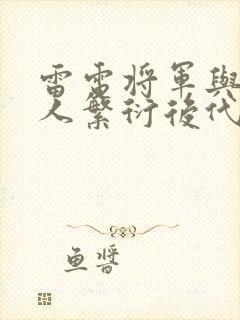 雷雷将軍與
人繁衍後代
鱼醬